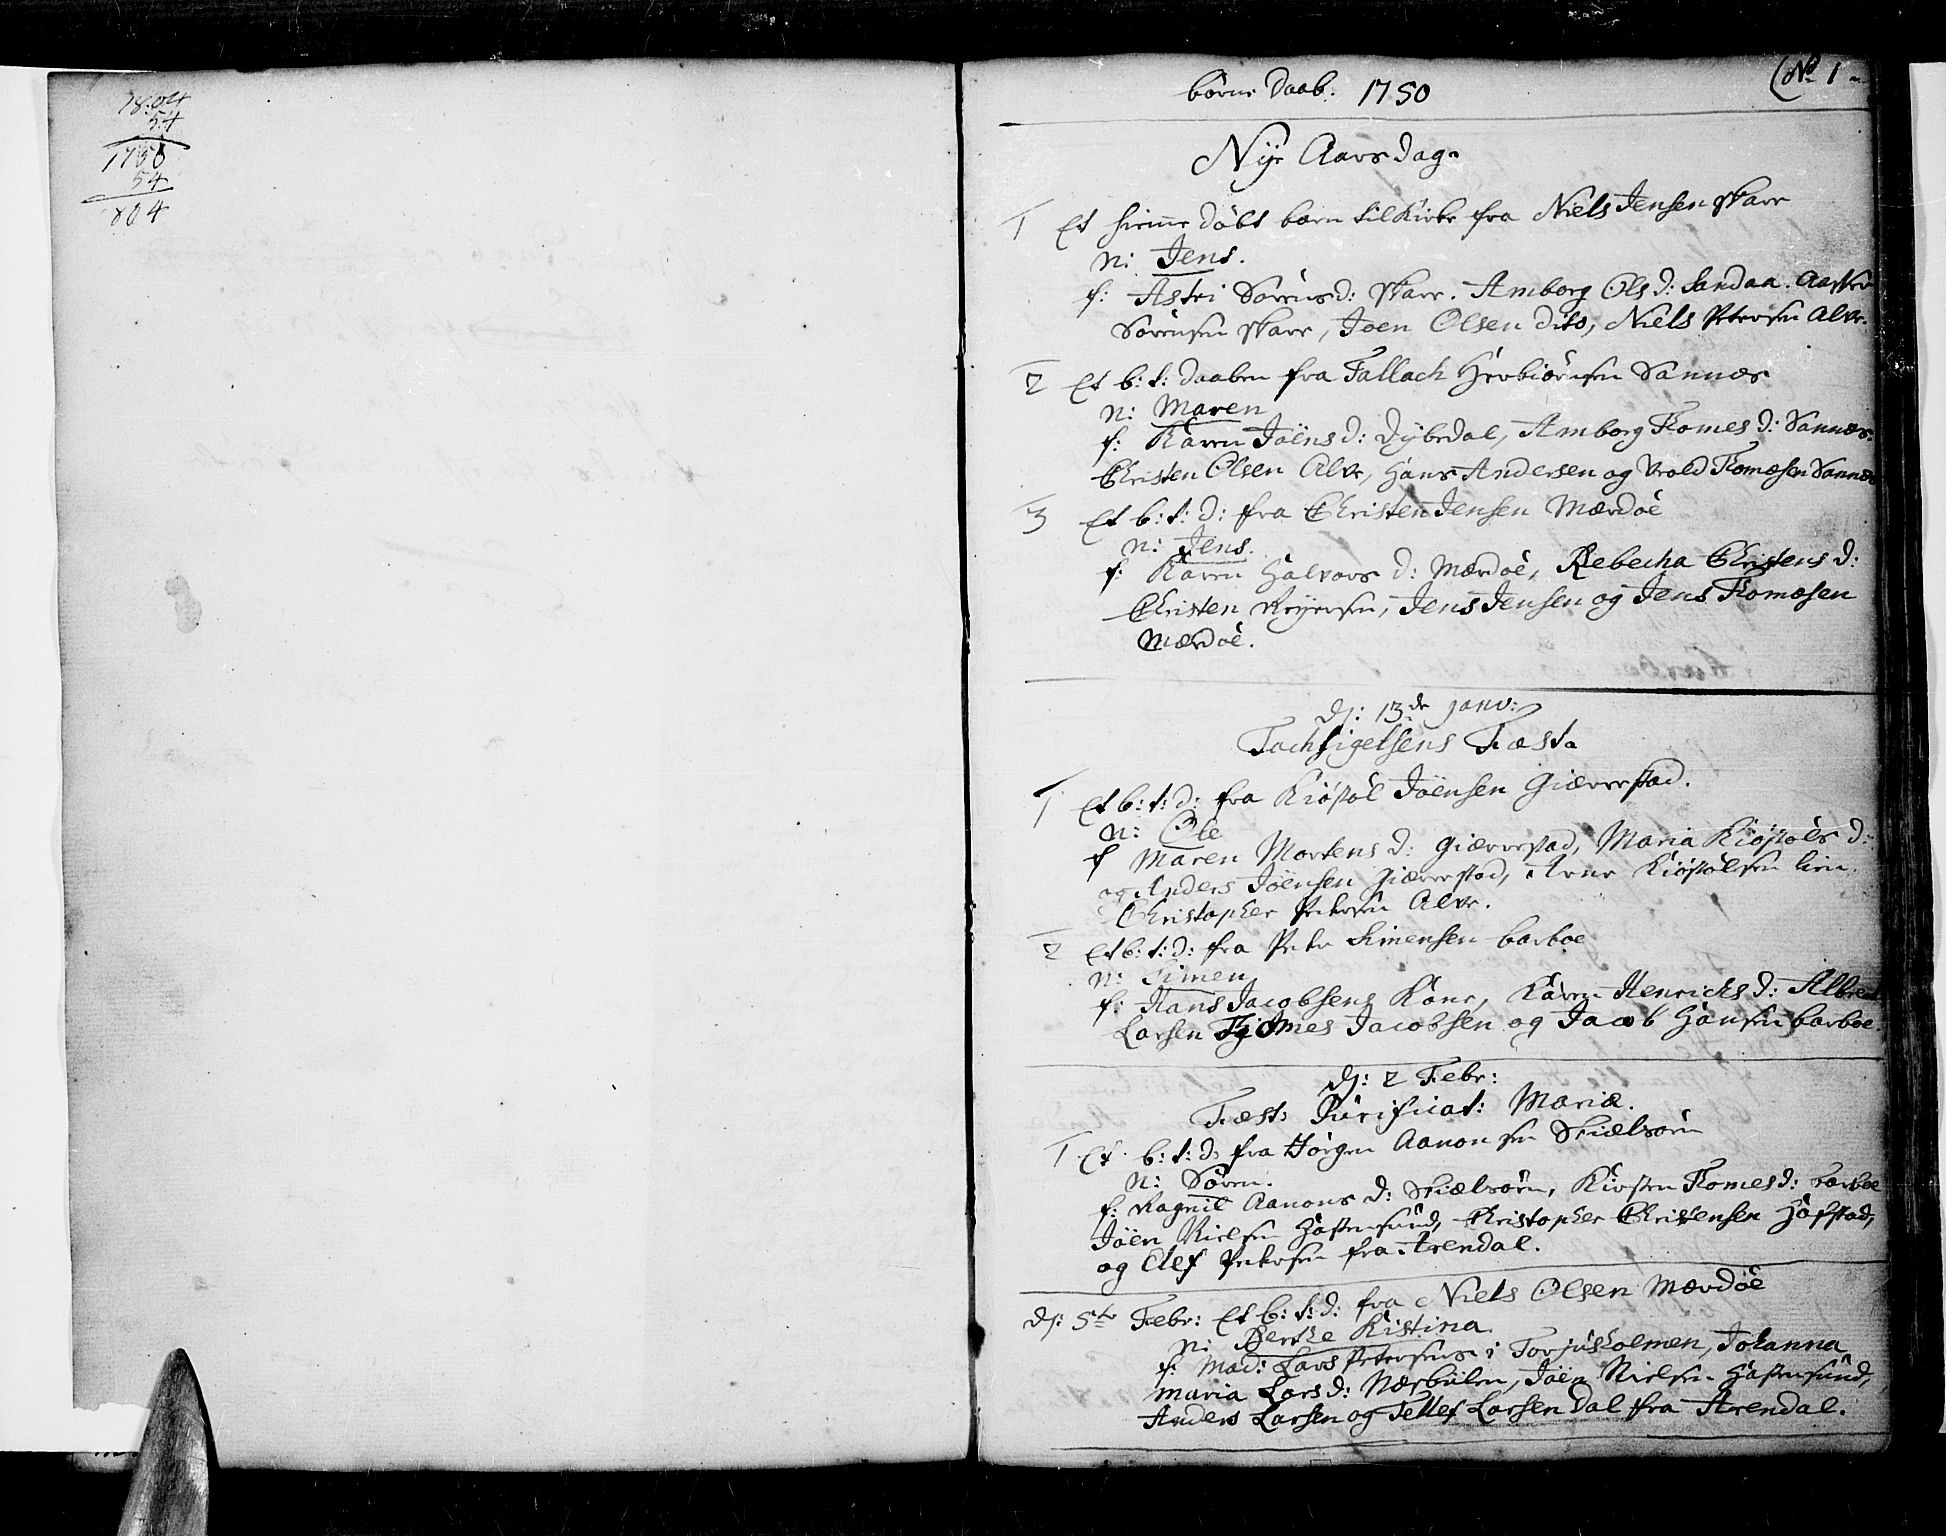 1804
54
1750
54
1804
børne Daab. 1750
No 1
Nye Aars Dag
1 Et hieme døbt barn til Kirke fra Niels Jensen Skare
N: Jens.
f: Astri Sørensd: Skare. Amborg Olsd: Sandaa. Aasker
Sørensen Skare, Joen Olsen dito, Niels Petersen Alve.
2 Et b: t: daaben fra Tallach Herbiörnsen Sannæs
N: Maren
f: Karen Joënsd: Dybedal, Amborg Thomesd: Sannæs.
Christen Olsen Alve, Hans Andersen og Vrold Thomæsen Sannæs
3 Et b: t: d: fra Christen Jensen Mærdøe
N: Jens.
f: Karen Halvors d: Mærdøe, Rebecha Christens d:
Christen Reyersen, Jens Jensen og Jens Thomæsen
Mærdøe.
D: 13de Janv:
Tachsigelsens Fæst
1 Et b: t: d: fra Kiøstol Joënsen Giæverstad.
N: Ole
f Maren Mortens d: Giæverstad, Maria Kiøstols d:
og Anders Joënsen Giæverstad, Arne Kiøstolsen Lien.
Christopher Petersen Alve.
2 Et b: t: d: fra Peter Simensen barboe
N: Simen
f: Hans Jacobsens Kone, Karen Henrichs d: Albret
Larsen Thomes Jacobsen og Jacob Hansen barboe.
D: 2 Febr:
Fæst: Purificat: Mariæ.
1 Et b: t: d: fra Jörgen Aanonsen Skiælsøen
N: Søren.
f: Ragnil Aanons d: Skiælsøen, Kirsten Thomesd: barboe
Joën Nielsen Hastensund, Christopher Christensen Hafstad,
og Elef Petersen fra Arendal.
D: 5te Febr: Et b: t: d: fra Niels Olsen Mærdøe
N: Berthe Kistina
f: Mad: Lars Petersens i Torjusholmen, Johanna
Maria Larsd: Næsbülen, Joën Nielsen Hastensund,
Anders Larsen og Tellef Larsen Dal fra Arendal.